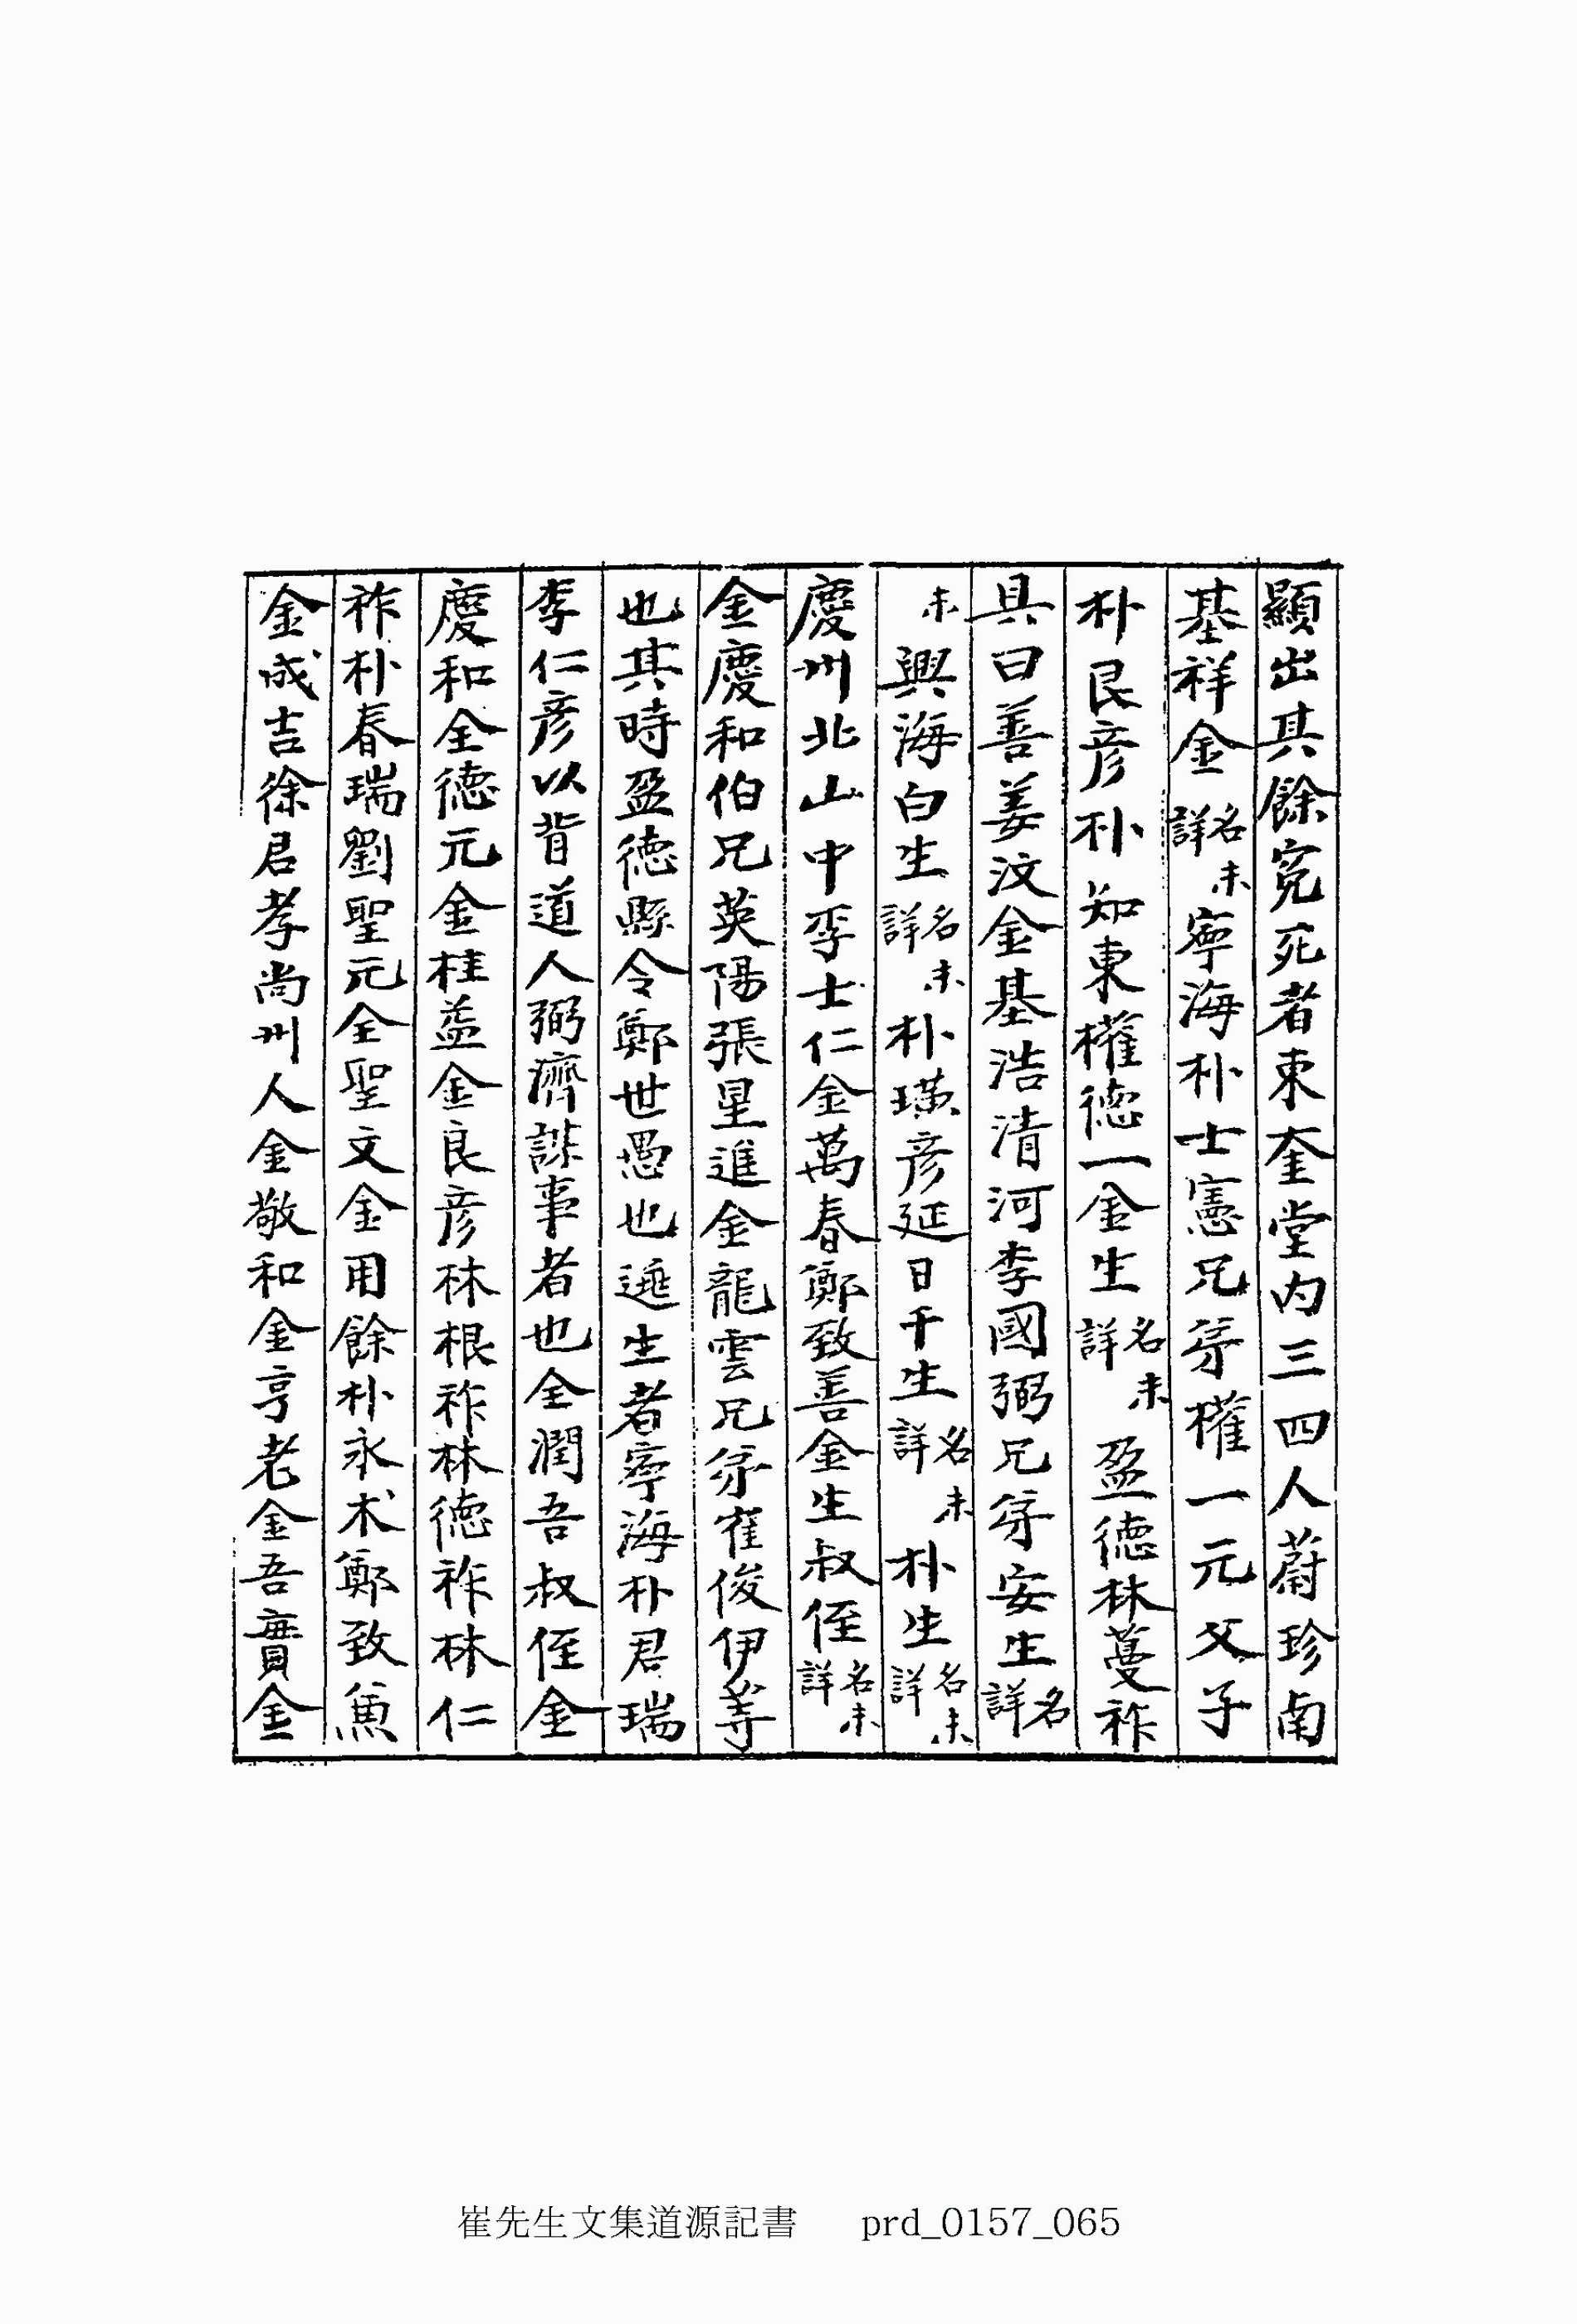 顯出其餘寃死者東奎堂內三四人蔚珍南
基祥金名未詳寧海朴士憲兄弟權一元父子
朴良彦朴知東權德一金生名未詳盈德林蔓祚
具日善姜汶金基浩清河李國弼兄弟安生名詳
未興海白生名未詳朴璜彦延日千生名未詳朴生名未詳
慶州北山中李士仁金萬春鄭致善金生叔侄名未詳
金慶和伯兄英陽張星進金龍雲兄弟崔俊伊等
也其時盈德縣令鄭世愚也逃生者寧海朴君瑞
李仁彦以背道人弼濟謀事者也全潤吾叔侄金
慶和全德元金桂益金良彦林根祚林德祚林仁
祚朴春瑞劉聖元全聖文金用餘朴永木鄭致兼
金成吉徐君孝尚州人金敬和金亨老金吾實金
崔先生文集道源記書 prd_0157_065